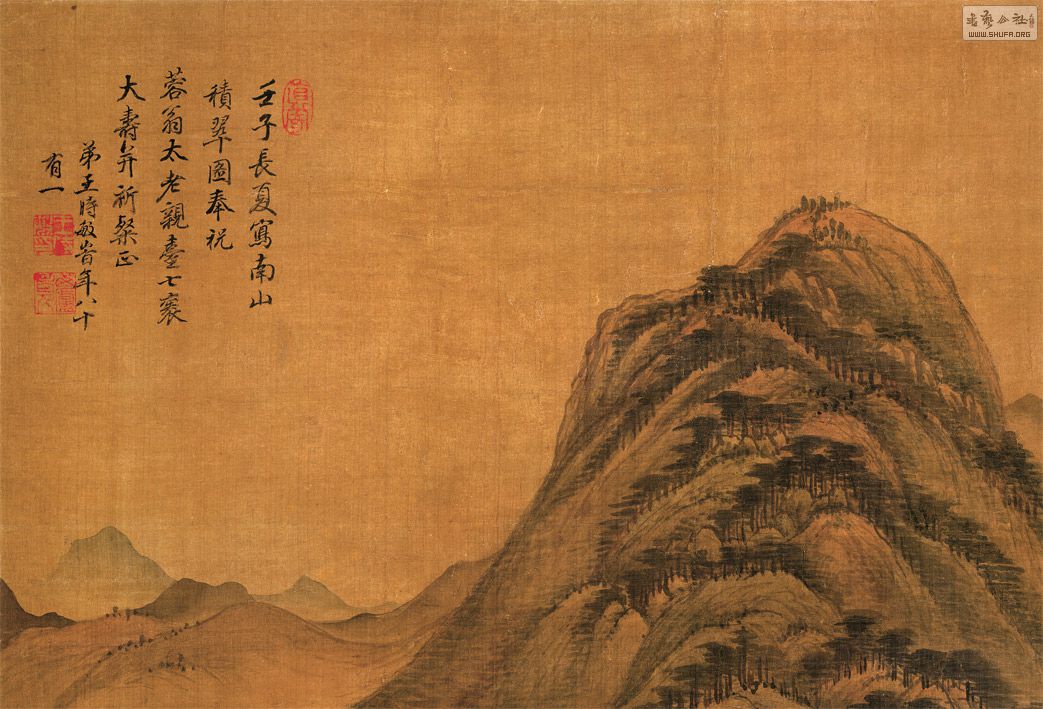 壬子長夏寫南山
積翠圖奉祝
蓉翁太老親臺七裘
大壽并祈粲正
弟王時敏時年八十
有一
WWW.SHUFA.ORG